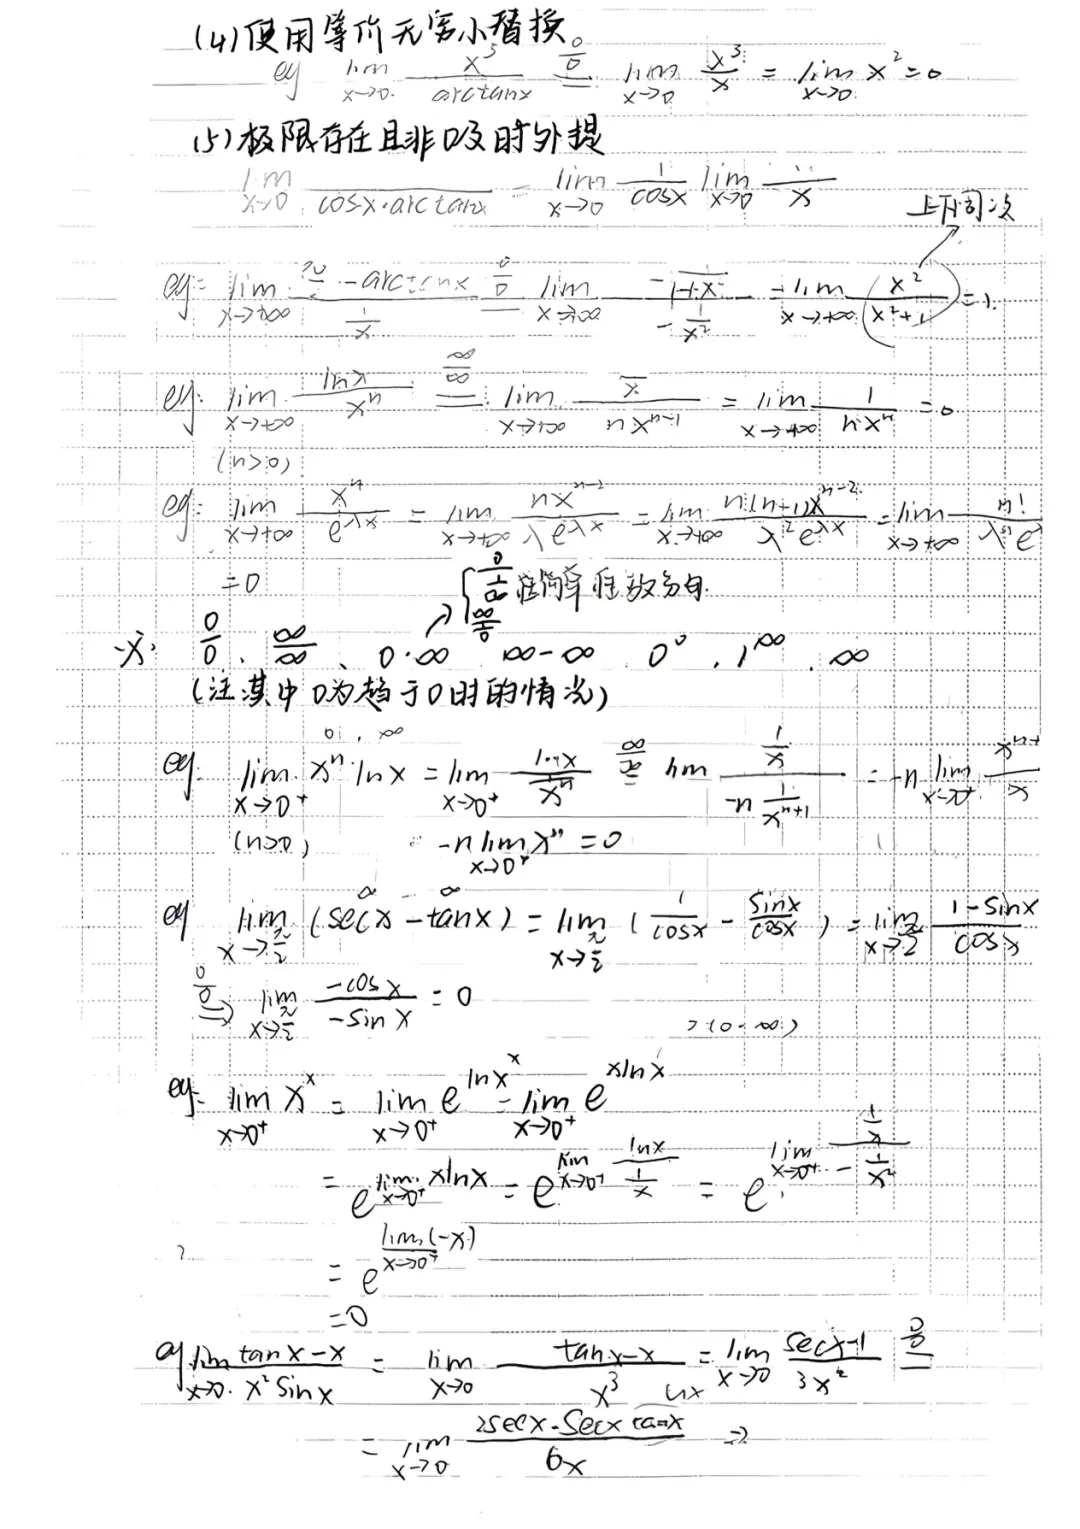 (4)使用等价无穷小替换。
eg lim x→0 x³/arctanx =(0/0) lim x→0 x³/x = lim x→0 x² = 0
(5)极限存在且非0及时外提
lim x→0 /cosx·arctanx = lim x→0 1/cosx lim x→0 /x
上下同次
eg: lim x→+∞ (π/2 - arctanx)/(1/x) =(0/0) lim x→+∞ / -1/x² = lim x→+∞ (x²/x²+1) = 1
eg: lim x→+∞ lnx/xⁿ =(∞/∞) lim x→+∞ /nxⁿ⁻¹ = lim x→+∞ 1/nxⁿ = 0
(n>0)
eg: lim x→+∞ xⁿ/e^λx = lim x→+∞ /λe^λx = lim x→+∞ xⁿ⁻²/λ²e^λx = lim x→+∞ n!/λⁿe
=0
0/0 ∞/∞ 简单 放分母.
0/0、∞/∞、0·∞ ∞-∞ 0⁰, 1^∞, ∞
(注其中0为趋于0时的情况)
eg. lim x→0⁺ xⁿ lnx = lim x→0⁺ lnx/(1/xⁿ) =(∞/∞) lim (1/x)/(-n 1/xⁿ⁺¹) = -n lim x→0⁺ xⁿ⁺¹/x
(n>0) -n lim x→0⁺ xⁿ = 0
eg lim x→π/2 (secx - tanx) = lim x→π/2 (1/cosx - sinx/cosx) = lim x→π/2 (1-sinx)/cosx
=(0/0) lim x→π/2 -cosx/-sinx = 0
(0·∞)
eg: lim x→0⁺ xˣ = lim x→0⁺ e^lnxˣ = lim x→0⁺ e^xlnx
= e^lim x→0⁺ xlnx = e^lim x→0⁺ lnx/(1/x) = e^lim x→0⁺ (1/x)/(-1/x²)
= e^lim x→0⁺ (-x)
=0
eg lim x→0 (tanx-x)/(x²sinx) = lim x→0 (tanx-x)/x³ = lim x→0 /3x² =(0/0)
= lim x→0 2secx·secx tanx/6x